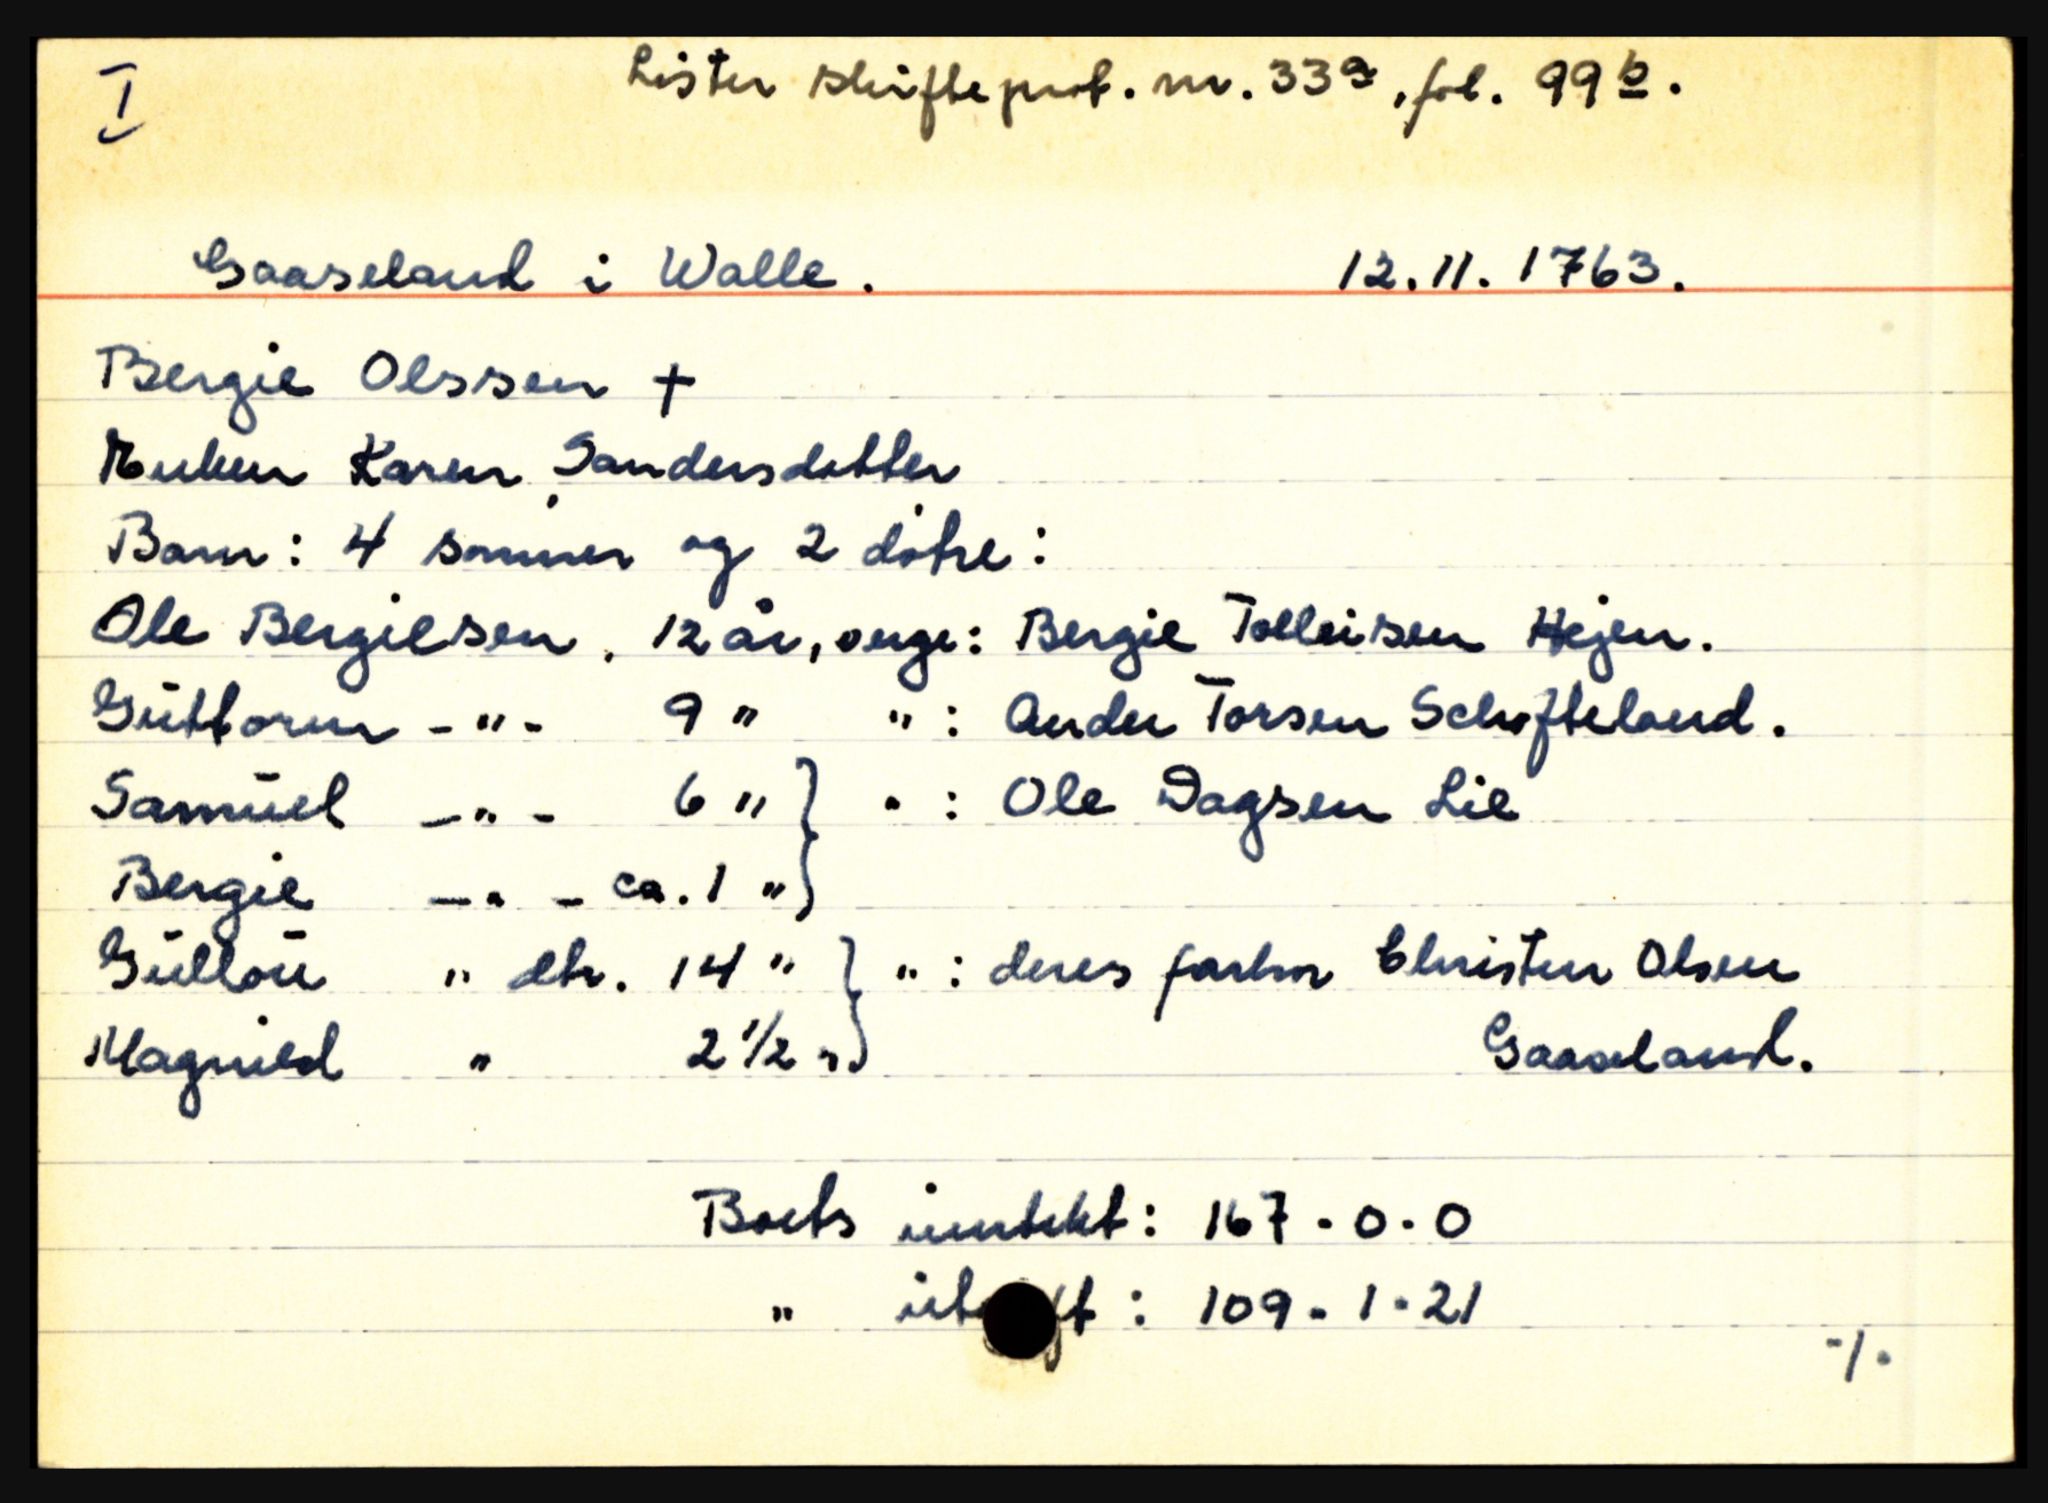 I
Lister skifteprot. nr. 33a, fol. 99b.
Gaaseland i Walle. 12.11.1763.
Bergie Olssen †
Enken Karen Sandersdatter
Barn: 4 sønner og 2 døtre:
Ole Bergiesen, 12 år, verge: Bergie Tolleisen Højen.
Guttorm -"- 9 " " : Anders Torsen Schofteland.
Samuel -"- 6 " } " : Ole Dagsen Lie
Bergie -"- ca. 1 " }
Gullou " dtr. 14 " } " : deres farbror Christen Olsen
Magnild " 2 1/2 " } Gaaseland.
Boets inntekt: 167 - 0 - 0
" utgift : 109 - 1 - 21
-/.